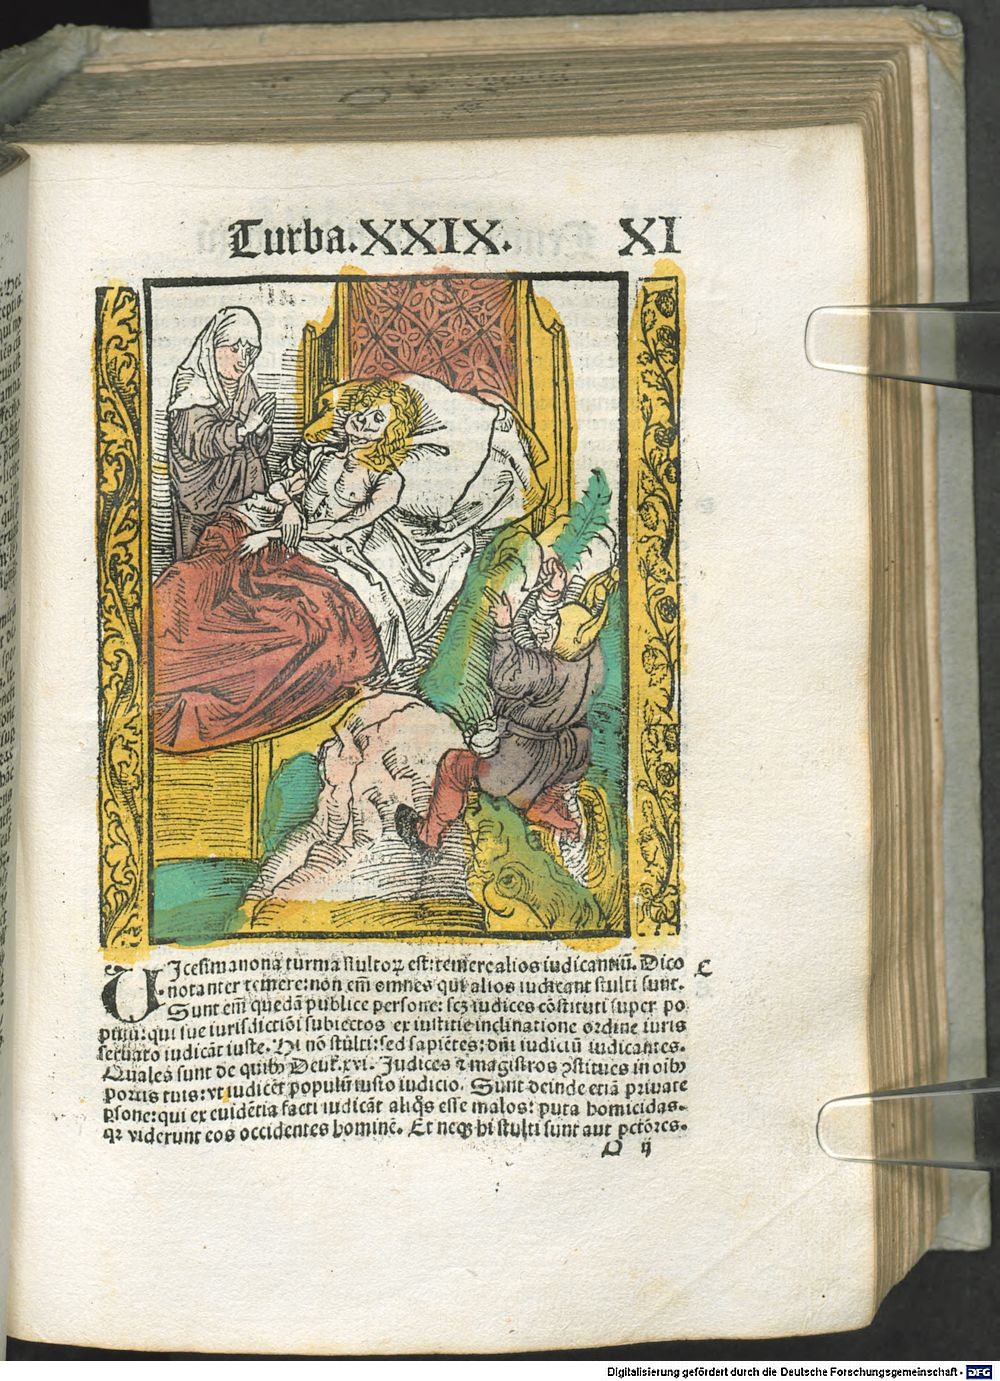 Turba.XXIX. XI
VJcesimanona turma stultoꝝ est: temere alios iudicantiū. Dico C
notanter temere: non em̄ omnes qui alios iudicant stulti sunt.
Sunt em̄ quedā publice persone: scꝫ iudices cōstituti super po
pulū: qui sue iurisdictiōi subiectos ex iustitie inclinatione ordine iuris
seruato iudicāt iuste. Hi nō stulti: sed sapiētes: dn̄i iudiciū iudicantes.
Quales sunt de quibꝰ Deut̄.xvi. Judices ⁊ magistros ꝯstitues in oibꝰ
portis tuis: vt iudicēt populū iusto iudicio. Sunt deinde etiā priuate
ꝑsone: qui ex euidētia facti iudicāt aliq̄s esse malos: puta homicidas.
qꝛ viderunt eos occidentes hominē. Et neqꝫ hi stulti sunt aut pctōres.
O ij
Digitalisierung gefördert durch die Deutsche Forschungsgemeinschaft - DFG